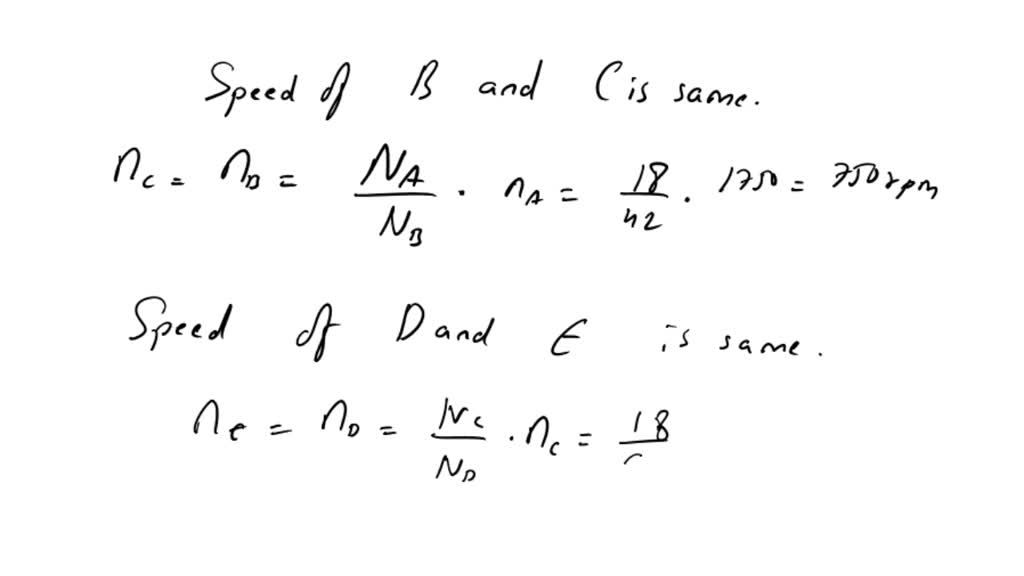 Speed of B and C is same.
n_C = n_B = N_A / N_B · n_A = 18 / 42 · 1750 = 750 rpm
Speed of D and E is same.
n_E = n_D = N_C / N_D · n_C = 18